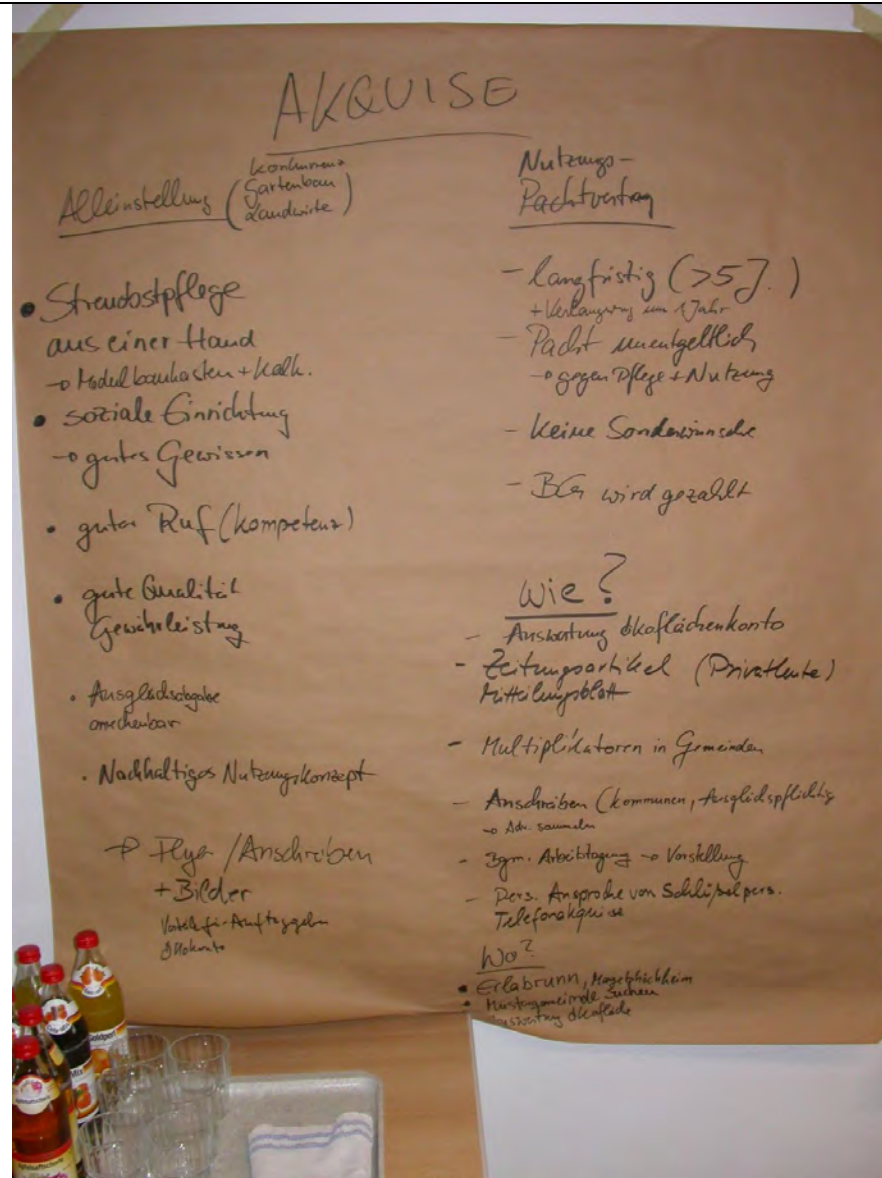 AKQUISE
Alleinstellung (Konkurrenz
Gartenbau
Landwirte)
• Streuobstpflege
aus einer Hand
→ Modulbaukasten + Kalk.
• soziale Einrichtung
→ gutes Gewissen
• guter Ruf (Kompetenz)
• gute Qualität
Gewährleistung
• Ausgleichsabgabe
anrechenbar
• Nachhaltiges Nutzungskonzept
→ Flyer / Anschreiben
+ Bilder
Vorteile für Auftraggeber
Ökokonto
Nutzungs-
Pachtvertrag
- langfristig (>5 J.)
+ Verlängerung um 1 Jahr
- Pacht unentgeltlich
→ gegen Pflege + Nutzung
- Keine Sonderwünsche
- BG wird gezahlt
Wie?
- Auswertung Ökoflächenkonto
- Zeitungsartikel (Privatleute)
Mitteilungsblatt
- Multiplikatoren in Gemeinden
- Anschreiben (Kommunen, Ausgleichspflichtig
→ Adr. sammeln
- Bgm. Arbeitstagung → Vorstellung
- Pers. Ansprache von Schlüsselpers.
Telefonakquise
Wo?
• Erlabrunn, Margetshöchheim
• Mustergemeinde suchen
Auswertung Ökofläche